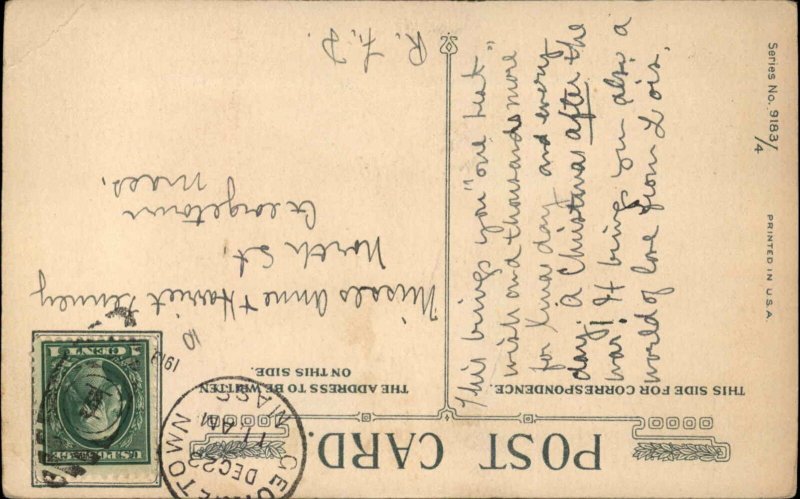 POST CARD.
THIS SIDE FOR CORRESPONDENCE.
THE ADDRESS TO BE WRITTEN
ON THIS SIDE.
This brings you "one heat"
wish and thousands more
for Xmas day and every
day. A Christmas after the
war! It brings you also a
world of love from Lois.
GEORGETOWN
DEC 23
11 AM
MASS
U.S. POSTAGE
1 CENT 1
Misses Anne & Harriet Tenney
North St
Georgetown
Mass.
R. F. D.
Series No. 9183/4
PRINTED IN U.S.A.